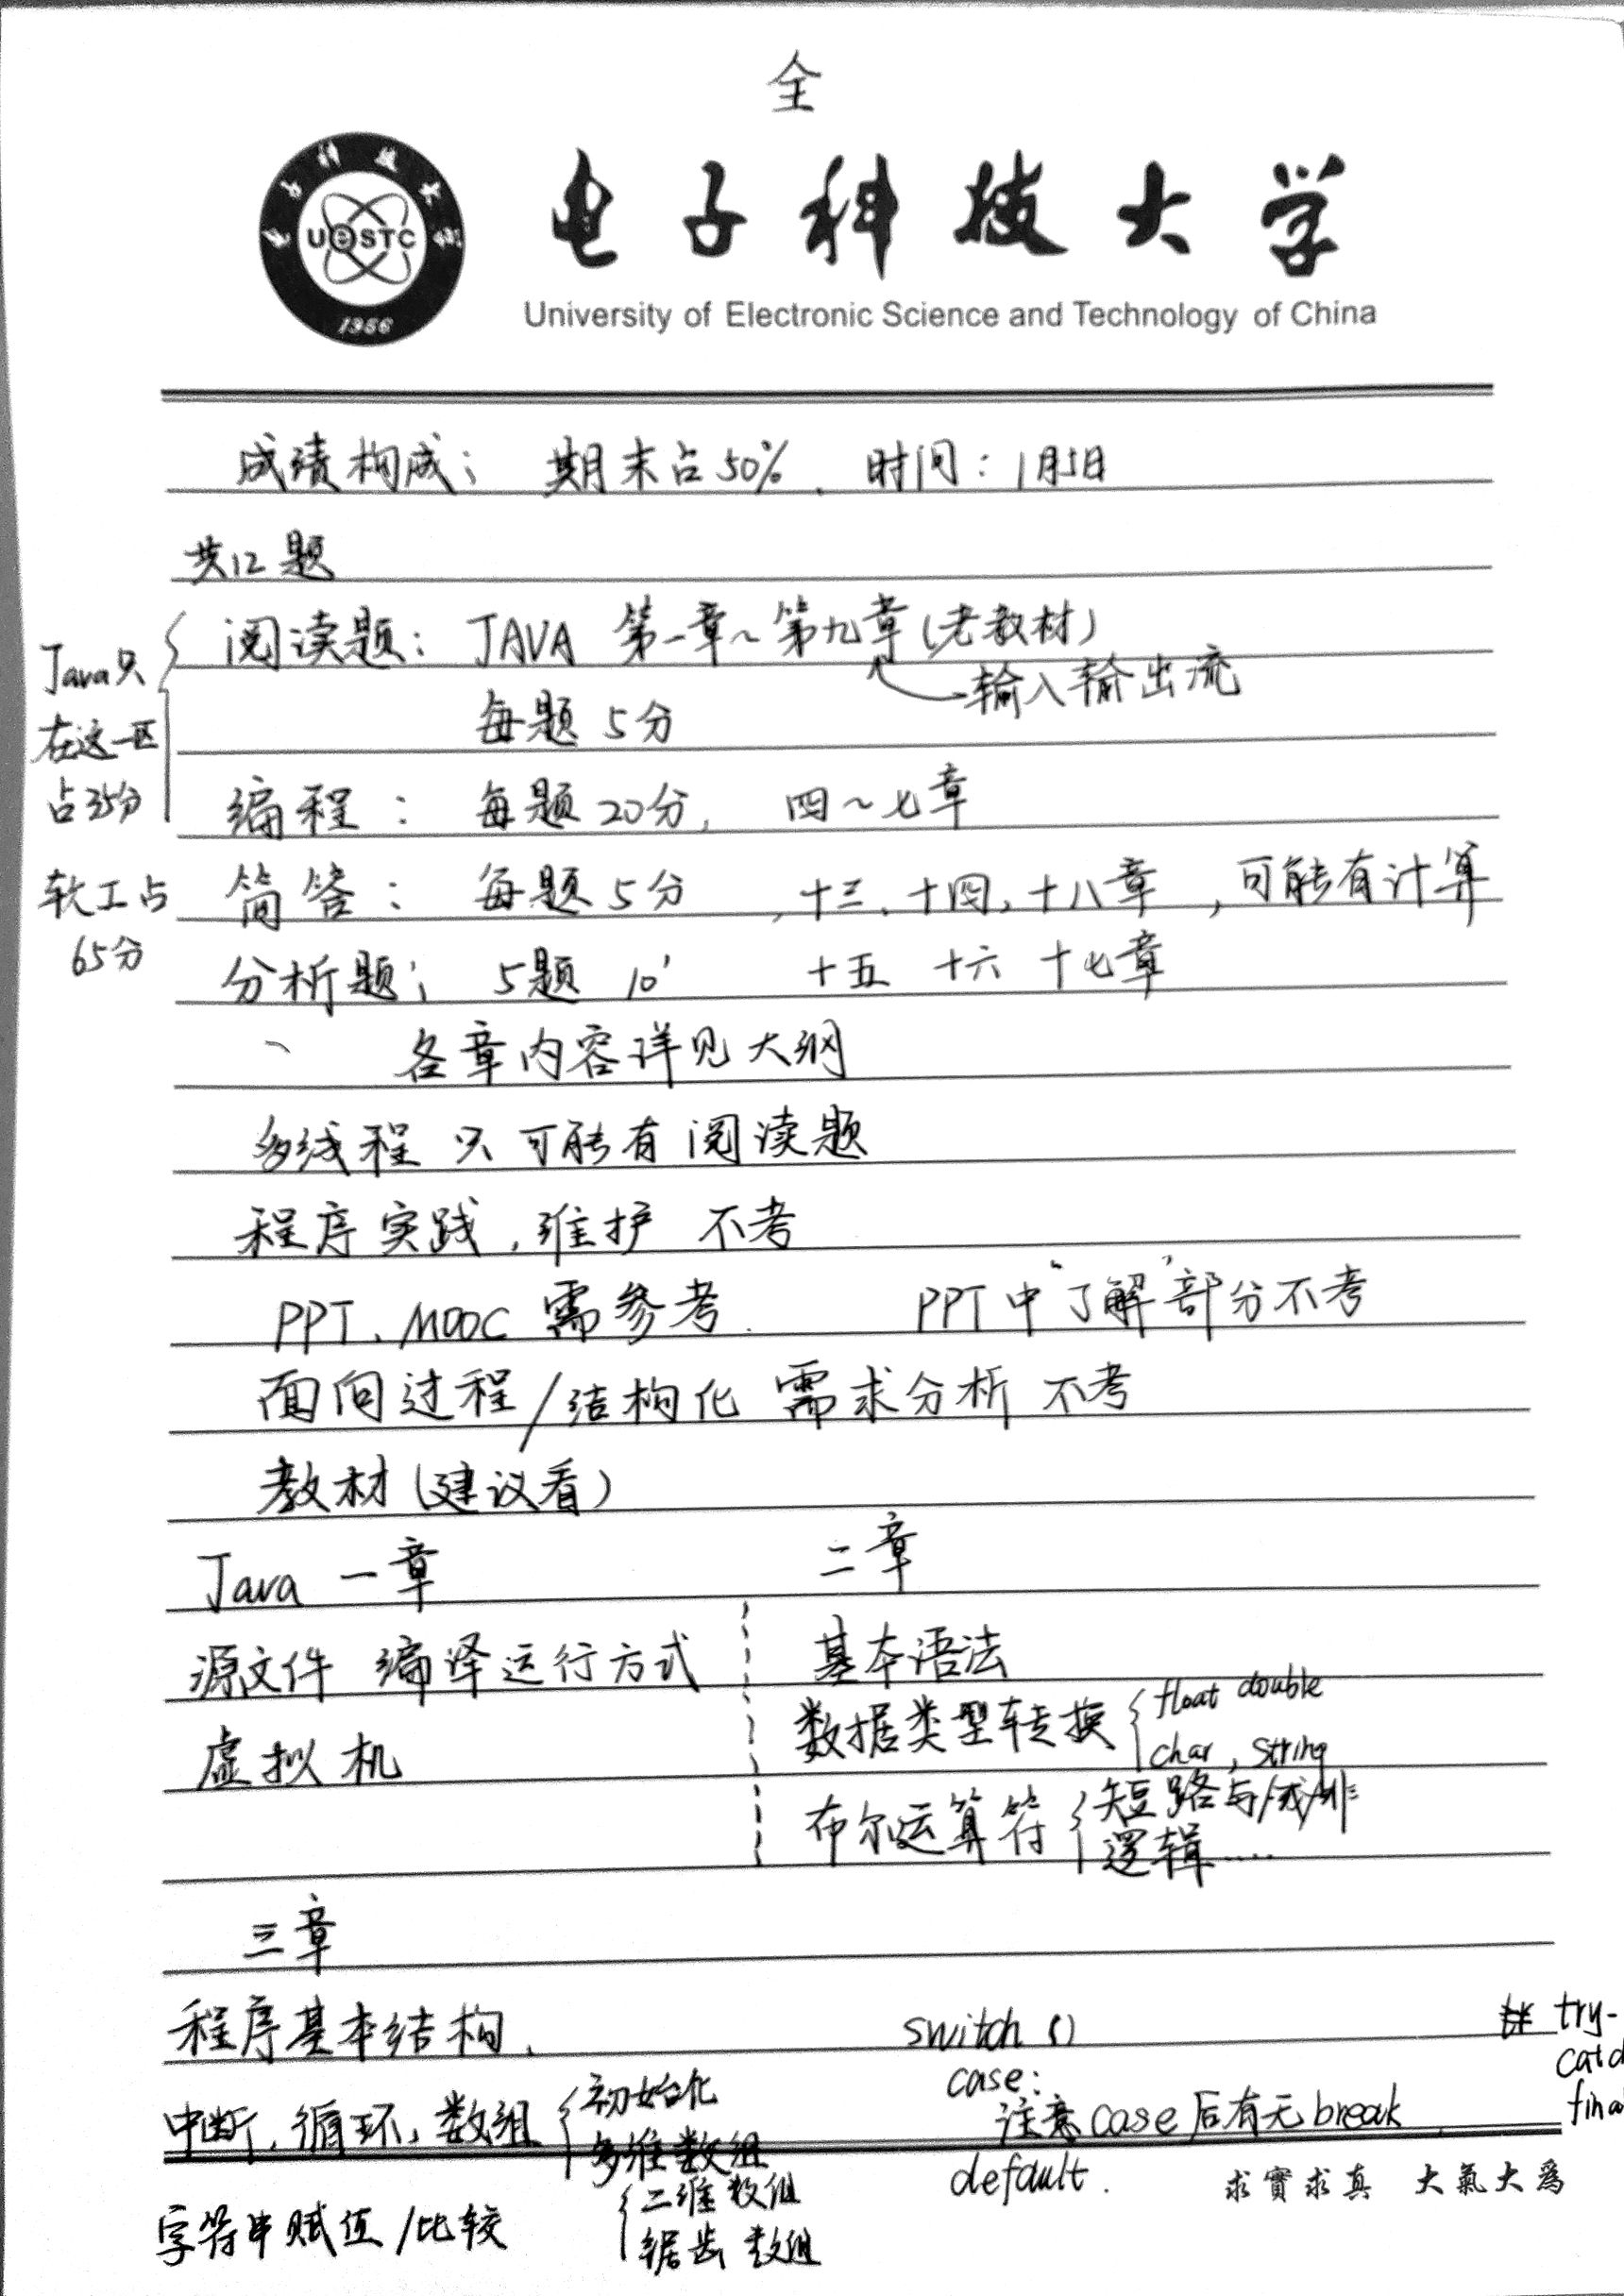 全
电子科技大学
UESTC
1956
University of Electronic Science and Technology of China
成绩构成: 期末占50%. 时间: 1月5日
共12题
Java只在这一区占35分
阅读题: JAVA 第一章~第九章(老教材)
输入输出流
每题5分
编程: 每题20分, 四~七章
软工占65分
简答: 每题5分, 十三、十四, 十八章, 可能有计算
分析题: 5题 10' 十五 十六 十七章
各章内容详见大纲
多线程 只可能有阅读题
程序实践, 维护 不考
PPT、MOOC 需参考. PPT中“了解”部分不考
面向过程/结构化 需求分析 不考
教材(建议看)
Java 一章 二章
源文件 编译运行方式 基本语法
虚拟机 数据类型转换 { float double
char, string
布尔运算符 { 短路与/或/非
逻辑....
三章
程序基本结构. switch () try-
case: catc
中断, 循环, 数组 { 初始化 注意case后有无break fina
多维数组 default.
{ 二维数组
锯齿数组
字符串赋值/比较
求實求真 大氣大爲